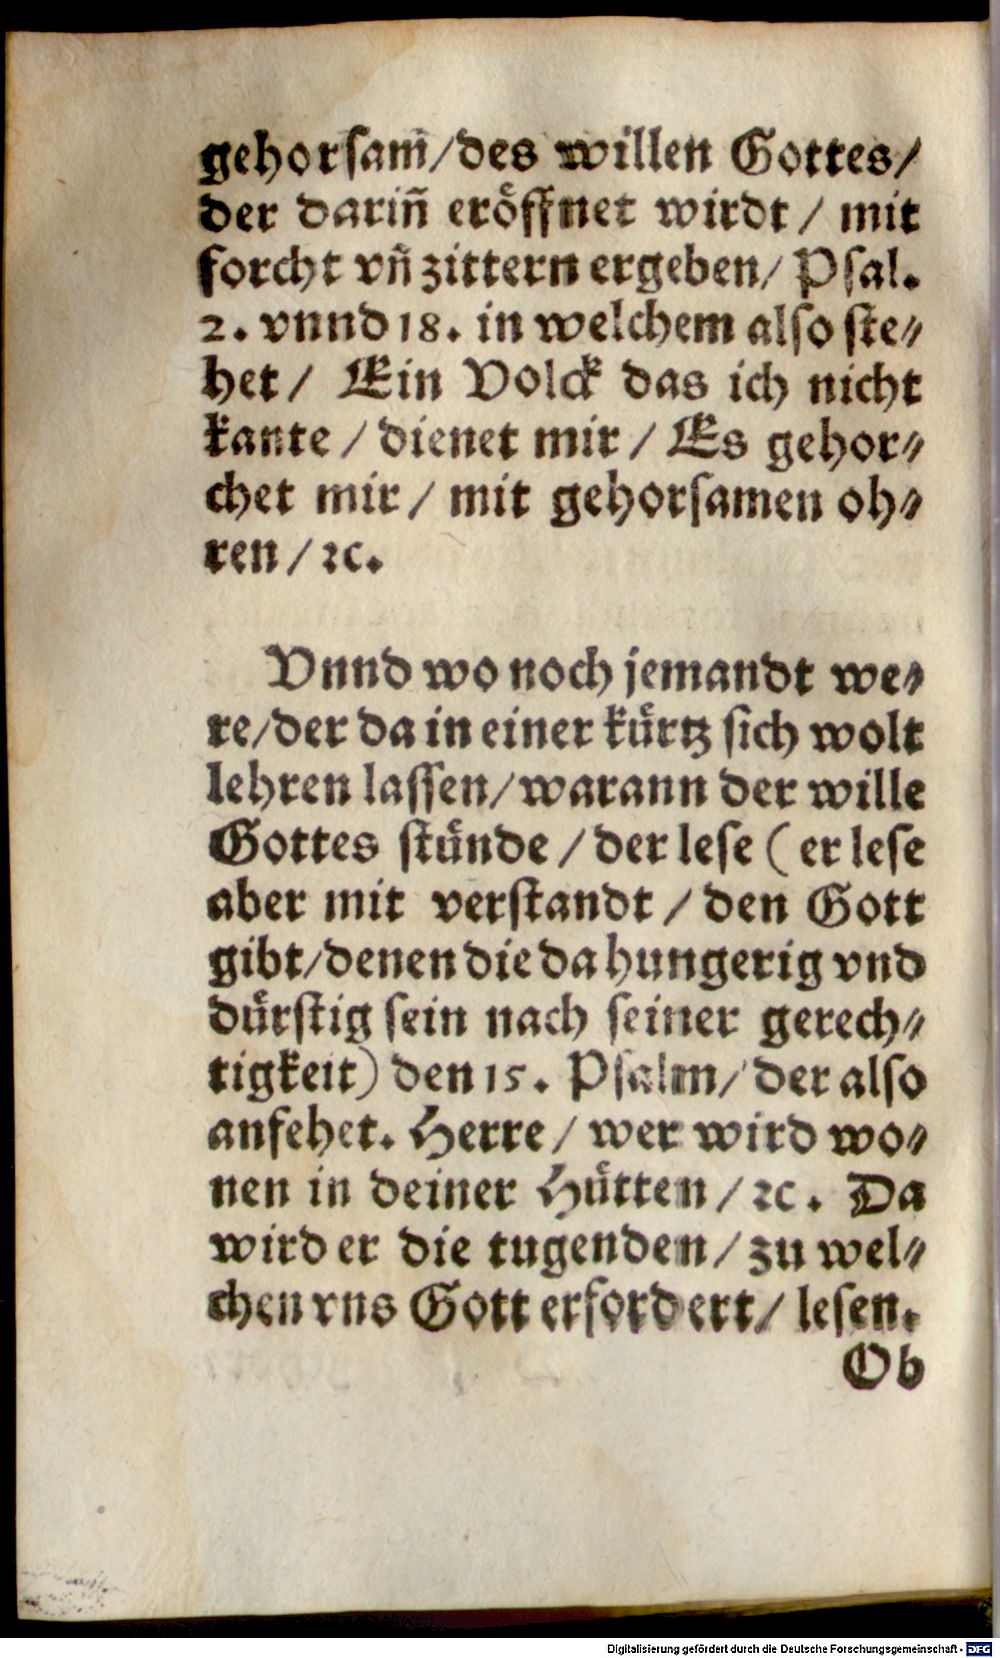 gehorsam̃/des willen Gottes/
der dariñ eröffnet wirdt / mit
forcht vñ zittern ergeben/ Psal.
2. vnnd 18. in welchem also ste⸗
het / Ein Volck das ich nicht
kante / dienet mir / Es gehor⸗
chet mir / mit gehorsamen oh⸗
ren / ꝛc.
Vnnd wo noch jemandt we⸗
re/der da in einer kürtz sich wolt
lehren lassen/warann der wille
Gottes stünde / der lese ( er lese
aber mit verstandt / den Gott
gibt/denen die da hungerig vnd
dürstig sein nach seiner gerech⸗
tigkeit) den 15. Psalm/ der also
anfehet. Herre / wer wird wo⸗
nen in deiner Hütten / ꝛc. Da
wird er die tugenden / zu wel⸗
chen vns Gott erfordert/ lesen.
Ob
Digitalisierung gefördert durch die Deutsche Forschungsgemeinschaft - DFG